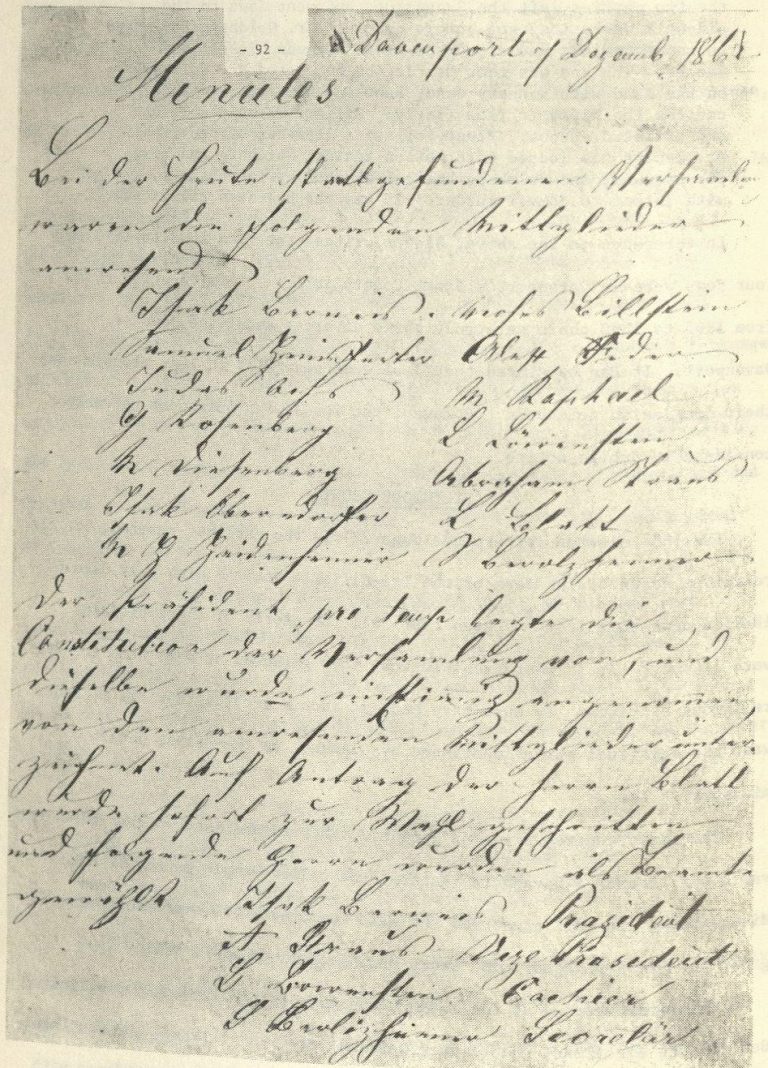 - 92 -
Davenport 7 Dezemb. 1861
Minutes
Bei der heute stattgefundenen Versamlun
waren die folgenden Mittglieder
anwesend
Isak Berneis. Moses Billstein
Samuel Alex Feder
Judas Sachs M Raphael
G Rosenberg L Löwenstein
M Diesenberg Abraham Straus
Isak Oberndorfer L Blatt
S Berolzheimer
Der Präsident pro temp legte die
Constitution der Versamlung vor, und
dieselbe wurde einstimig angenommen,
von den anwesenden Mittglieder unter-
zeichnet. Auf Antrag der Herrn Blatt
wurde sofort zur Wahl geschritten
und folgende Herrn wurden als Beamte
gewählt Isak Berneis Prasident
A Straus Vize Prasedent
L Löwenstein Cachier
S Berlizheimer Secretär